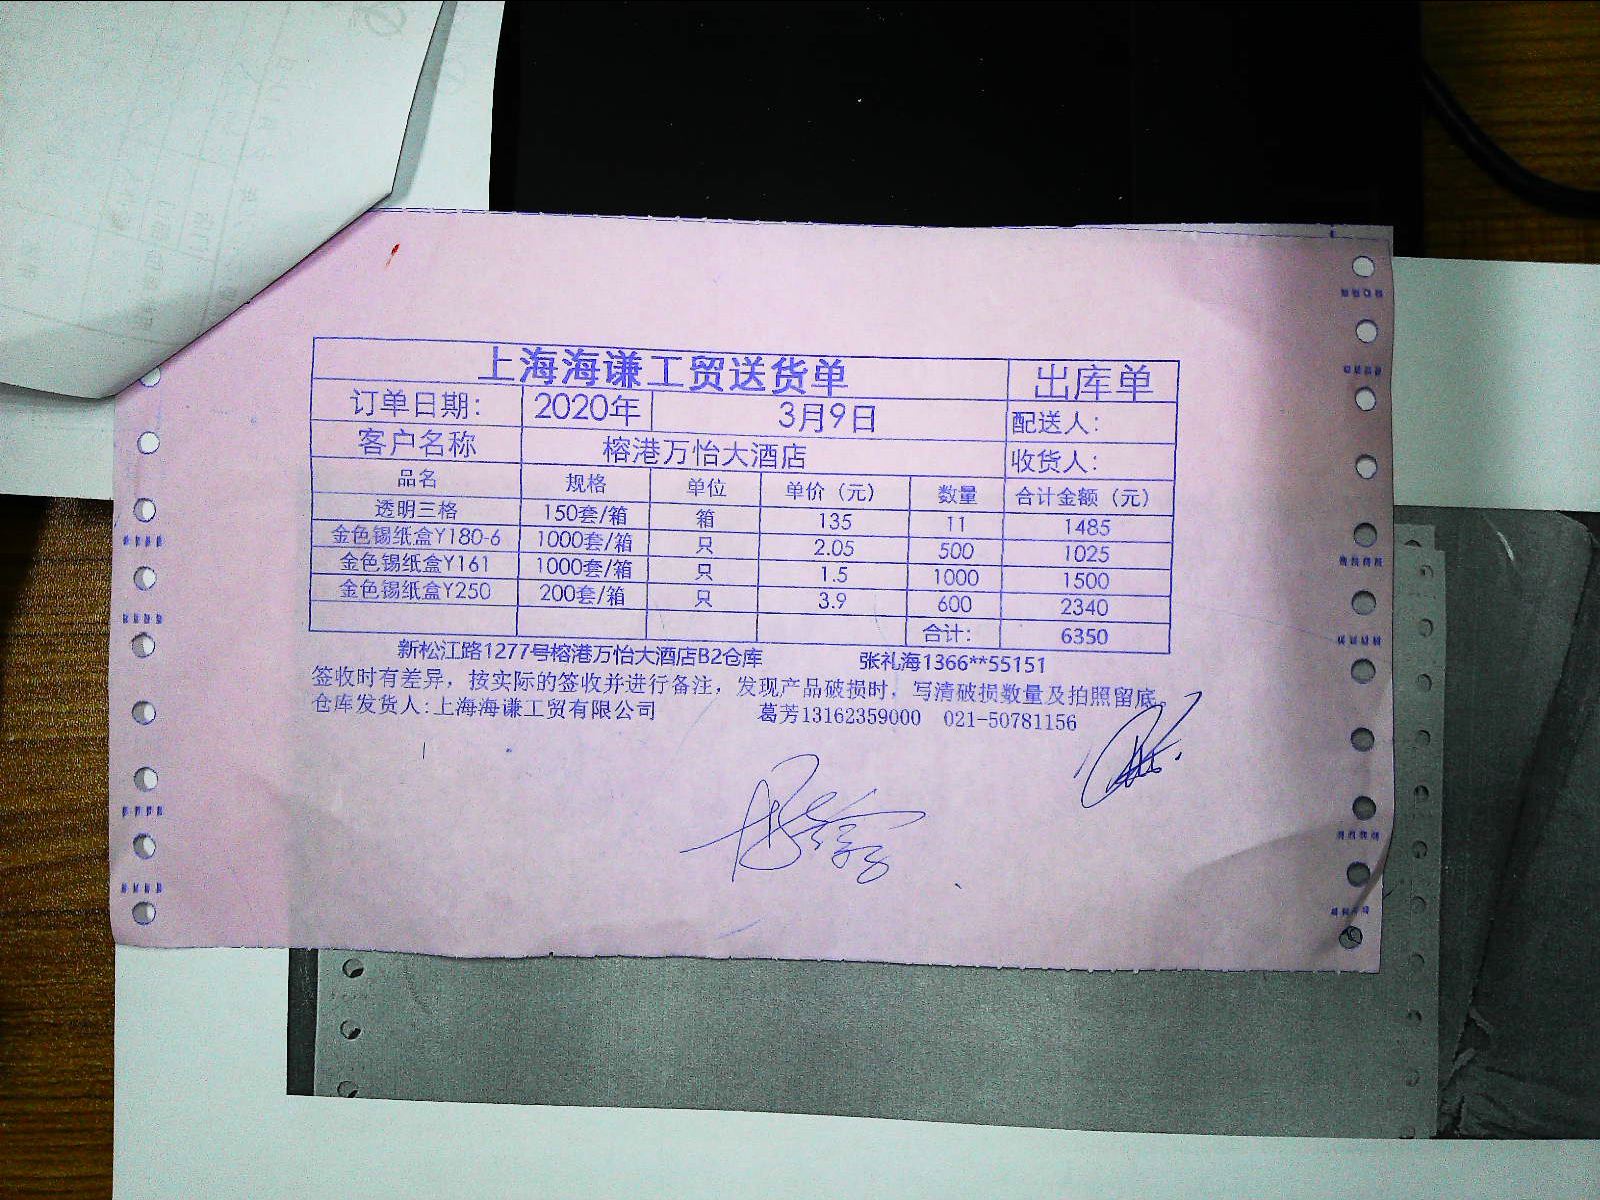 上海海谦工贸送货单 出库单
订单日期: 2020年 3月9日 配送人:
客户名称 榕港万怡大酒店 收货人:
品名 规格 单位 单价（元） 数量 合计金额（元）
透明三格 150套/箱 箱 135 11 1485
金色锡纸盒Y180-6 1000套/箱 只 2.05 500 1025
金色锡纸盒Y161 1000套/箱 只 1.5 1000 1500
金色锡纸盒Y250 200套/箱 只 3.9 600 2340
合计: 6350
新松江路1277号榕港万怡大酒店B2仓库 张礼海1366**55151
签收时有差异，按实际的签收并进行备注，发现产品破损时，写清破损数量及拍照留底。
仓库发货人:上海海谦工贸有限公司 葛芳13162359000 021-50781156